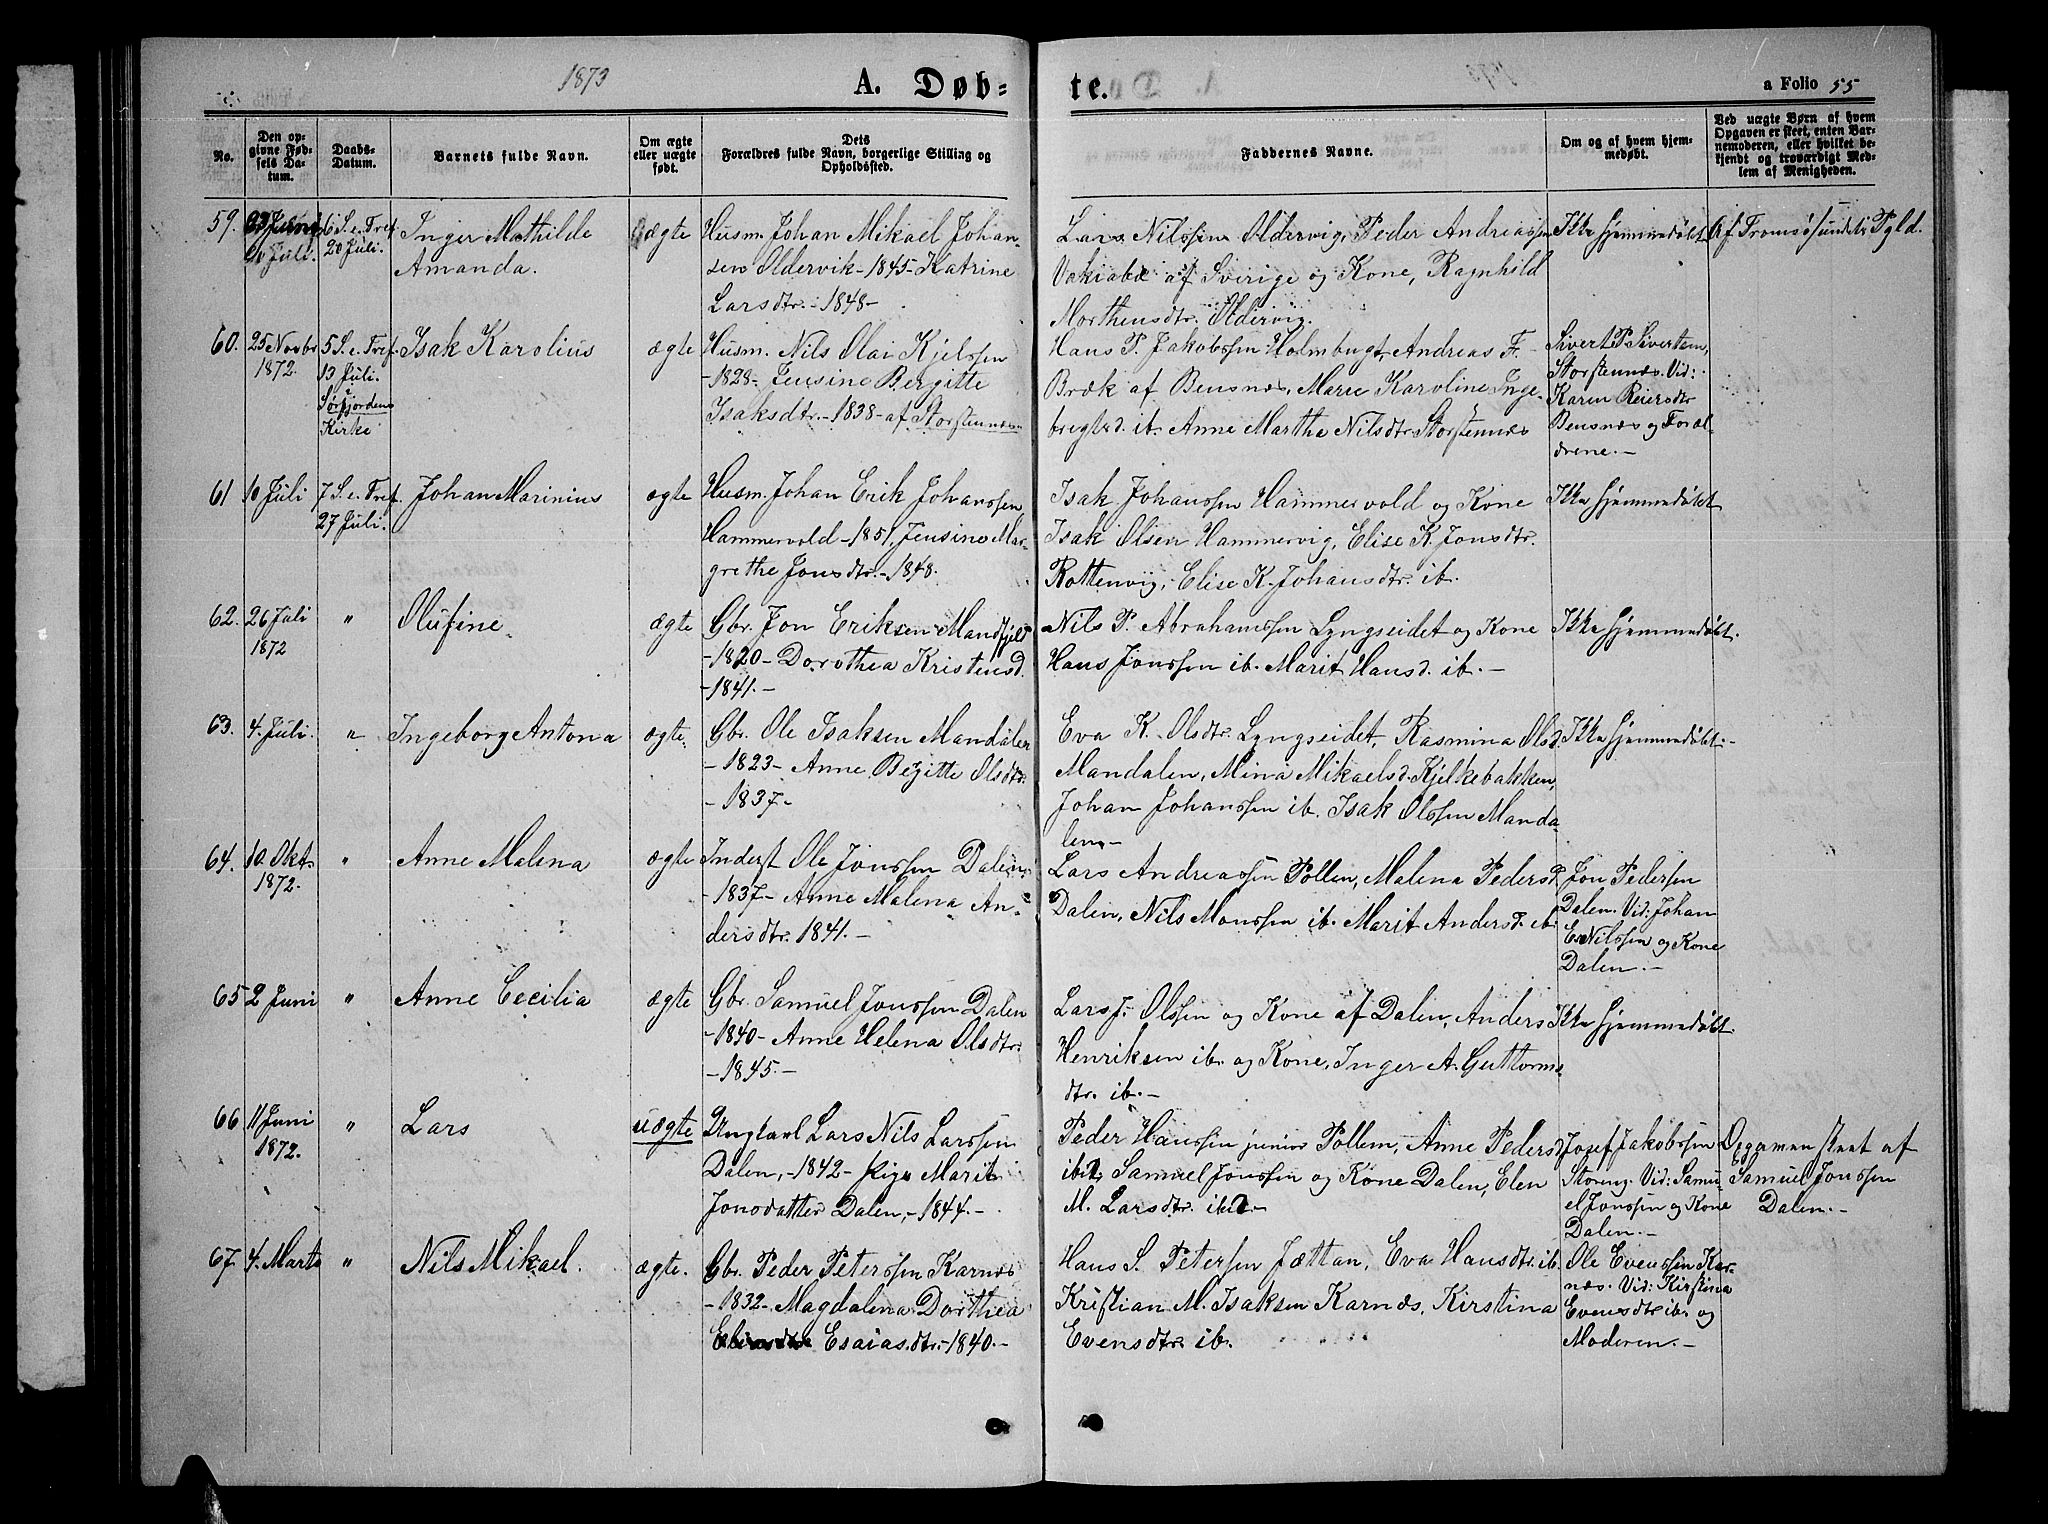 1873 A. Døb= te. a Folio 55
No.
Den op-
givne Fød-
sels Da-
tum.
Daabs-
Datum.
Barnets fulde Navn.
Om ægte
eller uægte
født.
Dets
Forældres fulde Navn, borgerlige Stilling og
Opholdssted.
Faddernes Navne.
Om og af hvem hjem-
medøbt.
Ved uægte Børn af hvem
Opgaven er skeet, enten Bar-
nemoderen, eller hvilket be-
kjendt og troværdigt Med-
lem af Menigheden.
59.
Juli.
6 S. e. Tref.
20 Juli.
Inger Mathilde
Amanda.
ægte
Husm. Johan Mikael Johan-
sen Oldervik - 1845 - Katrine
Larsdtr. - 1848 -
Lars Nilssen Oldervig, Peder Andreassen
af Sverige og Kone, Ragnhild
Morthensdtr. Oldervig.
Ikke hjemmedøbt
Af Tromsøsundets Pgld.
60.
25 Novbr
1872.
5 S. e. Tref.
13 Juli.
Sørfjordens
Kirke
Isak Karolius
ægte
Husm. Nils Olai Kjelssen
- 1828 - Jensine Bergitte
Isaksdtr. - 1838 - af Storstennæs
Hans P. Jakobssen Holmbugt, Andreas F.
Bræk af Bensnæs, Marie Karoline Inge-
brigtsd. ib. Anne Martha Nilsdtr. Storstennæs
Sivert P. Sivertsen,
Storstennæs. Vid:
Karen Reiersdtr
Bensnæs og Foræl-
drene. -
61
10 Juli
7 S. e. Tref.
27 Juli.
Johan Marinius
ægte
Husm. Johan Erik Johanssen
Hammervold - 1851, Jensine Mar-
grethe Jonsdtr. - 1848.
Isak Johanssen Hammervold og Kone
Isak Olsen Hammervig, Elise K. Jonsdtr.
Rottenvig, Elise K. Johansdtr. ib.
Ikke hjemmedøbt
62.
26 Juli
1872
"
Olufine
ægte
Gbr. Jon Eriksen Mandfjeld
- 1820 - Dorothea Kristensd.
- 1841. -
Nils P. Abrahamssen Lyngseidet og Kone
Hans Jonssen ib. Marit Hansd. ib. -
Ikke hjemmedøbt.
63.
4. Juli.
"
Ingeborg Antona
ægte.
Gbr. Ole Isaksen Mandalen
- 1823 - Anne Bergitte Olsdtr.
- 1837 -
Eva K. Olsdtr. Lyngseidet, Rasmina Olsd.
Mandalen, Mina Mikaelsd. Kjelkebakken,
Johan Johanssen ib. Isak Olssen Manda-
len. -
Ikke hjemmedøbt. -
64.
10. Okt.
1872.
"
Anne Malena
ægte
Inderst Ole Jonssen Dalen,
- 1837 - Anne Malena An-
dersdtr. 1841. -
Lars Andreassen Pollen, Malena Pedersd.
Dalen, Nils Monssen ib. Marit Andersd. ib.
Jon Pedersen
Dalen. Vid: Johan
E. Nilssen og Kone
Dalen. -
65
2 Juni
"
Anne Cecilia
ægte
Gbr. Samuel Jonssen Dalen
- 1840 - Anne Helena Olsdtr.
- 1845. -
Lars J. Olssen og Kone af Dalen, Anders
Henriksen ib. og Kone, Inger A. Guttorms-
dtr. ib. -
Ikke hjemmedøbt.
66
11 Juni
1872.
"
Lars
uægte
Ungkarl Lars Nils Larssen
Dalen, - 1842 - Pige Marit
Jonsdatter Dalen, - 1844. -
Peder Hanssen junior Pollen, Anne Pedersd.
ibd, Samuel Jonssen og Kone Dalen, Elen
M. Larsdtr. ibd. -
Josef Jakobssen
Storeng. Vid: Samu-
el Jonssen og Kone
Dalen. -
Opgaven skeet af
Samuel Jonssen
Dalen. -
67.
4. Marts
"
Nils Mikael.
ægte.
Gbr. Peder Peterssen Karnæs
- 1832 - Magdalena Dorthea
Esaiasdtr. - 1840. -
Hans S. Petersen Jættan, Eva Hansdtr. ib.
Kristian M. Isaksen Karnæs, Kirstina
Evensdtr. ib.
Ole Evenssen Kar-
næs. Vid: Kirstina
Evensdtr. ib. og
Moderen. -